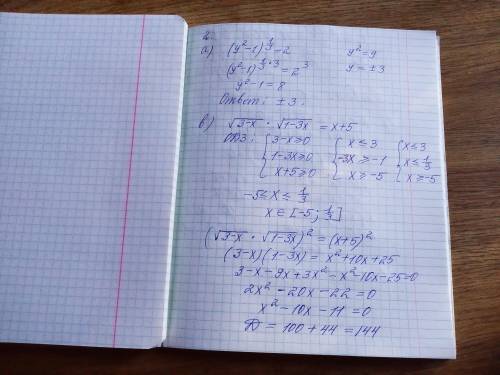 2.
а) (y²-1)^(1/3) = 2
y² = 9
(y²-1)^(1/3·3) = 2³
y = ±3
y²-1 = 8
Ответ: ±3.
в) √(3-x) · √(1-3x) = x+5
ОДЗ: { 3-x≥0 { x≤3 { x≤3
1-3x≥0 -3x≥-1 x≤1/3
x+5≥0 x≥-5 x≥-5
-5≤x≤1/3
x∈[-5; 1/3]
(√(3-x) · √(1-3x))² = (x+5)²
(3-x)(1-3x) = x²+10x+25
3-x-9x+3x²-x²-10x-25=0
2x²-20x-22=0
x²-10x-11=0
D = 100+44=144